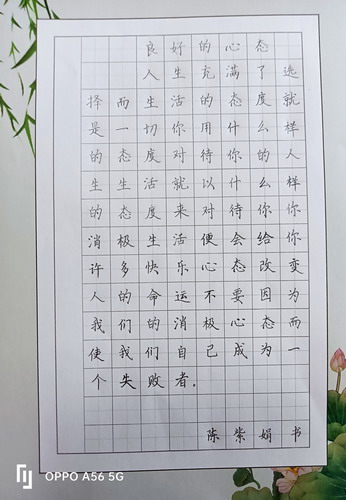 良好的心态
人生充满了选
择而生活的态度就
是一切你用什么样
的态度对待你的人
生生活就以什么样
的态度来对待你你
消极生活便会给你
许多快乐心态改变
人的命运不要因为
我们的消极心态而
使我们自己成为一
个失败者。
陈紫娟书
OPPO A56 5G